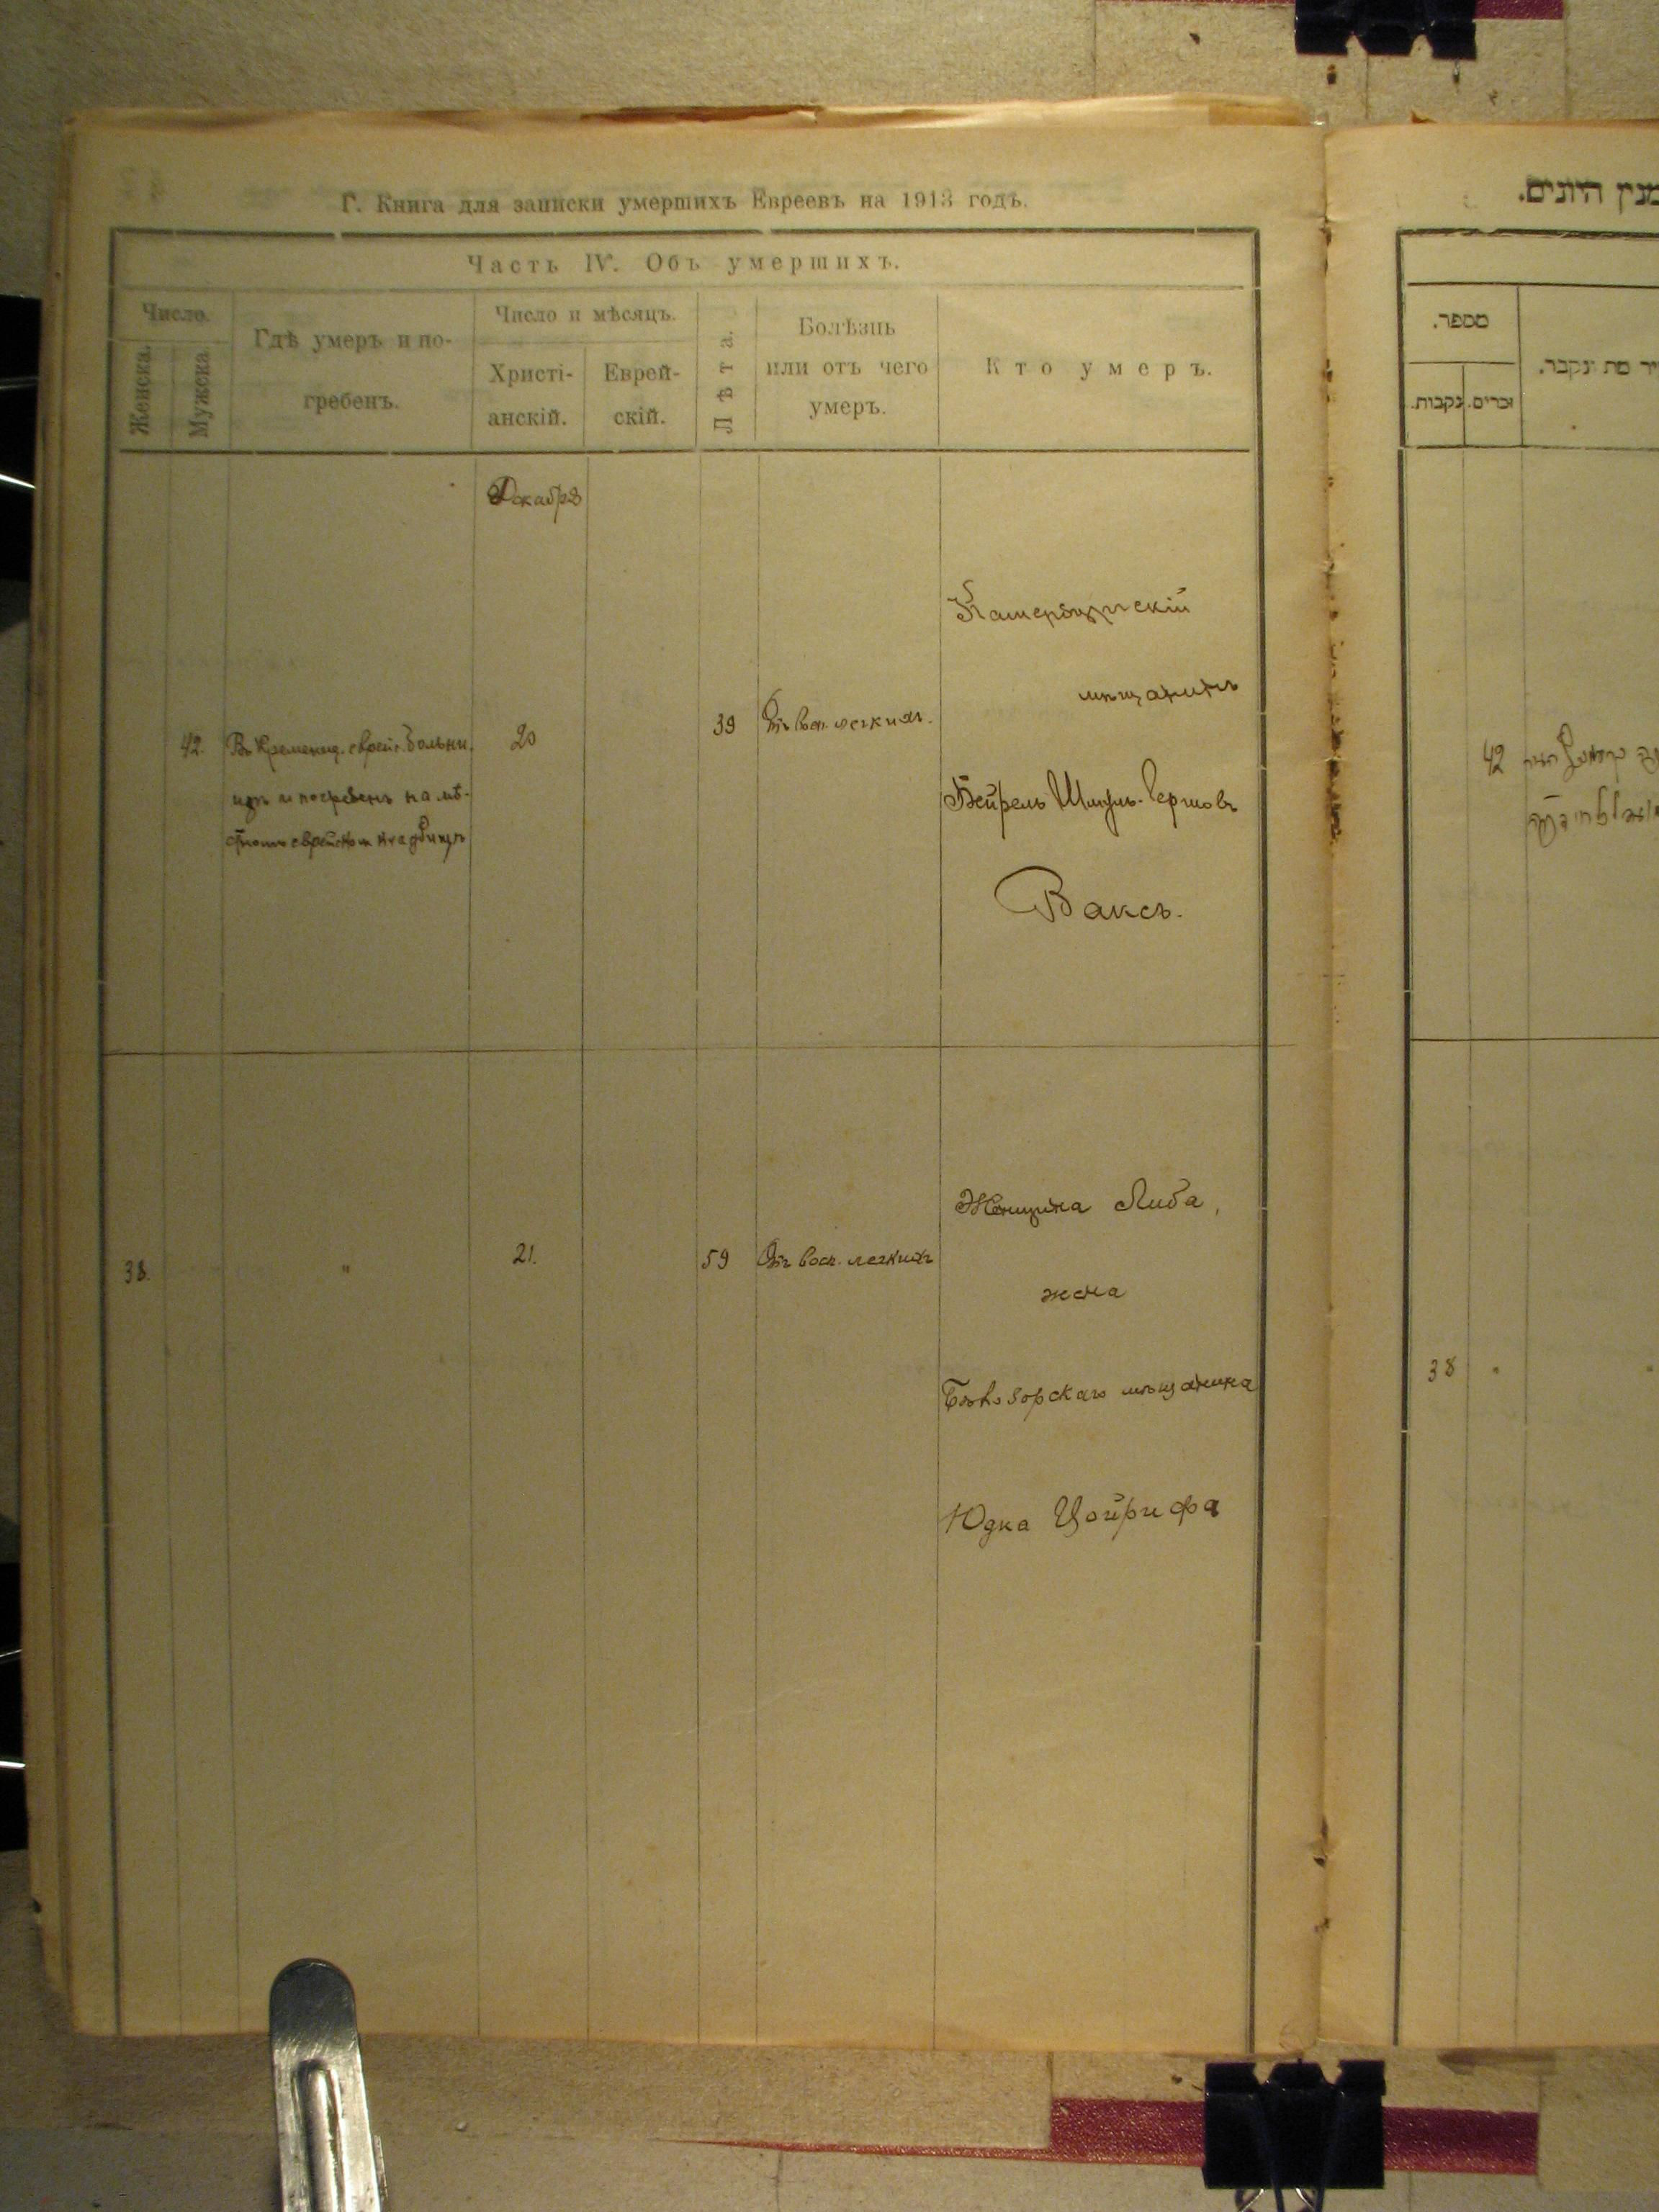 Г. Книга для записки умершихъ Евреевъ на 1913 годъ.
Часть IV. Объ умершихъ.
Число.
Женска.
Мужска
Гдѣ умеръ и по-
гребенъ.
Число и мѣсяцъ.
Христі-
анскій.
Еврей-
скій.
Лѣта.
Болѣзнь
или отъ чего
умеръ.
Кто умеръ.
Декабрь
42.
Въ Кременц. еврейс. больни
цѣ и погребенъ на мѣ-
стномъ еврейском кладбищѣ
20
39
Отъ восп. легкихъ.
мѣщанинъ
Бейрель Гершовъ
Ваксъ.
38.
"
21.
59
Отъ восп. легкихъ
Женщина Либа,
жена
Бѣлозорскаго мѣщанина
Юдка Цойрифа
מנין היונים.
מספר.
זכרים.
נקבות.
מת ונקבר.
42
38